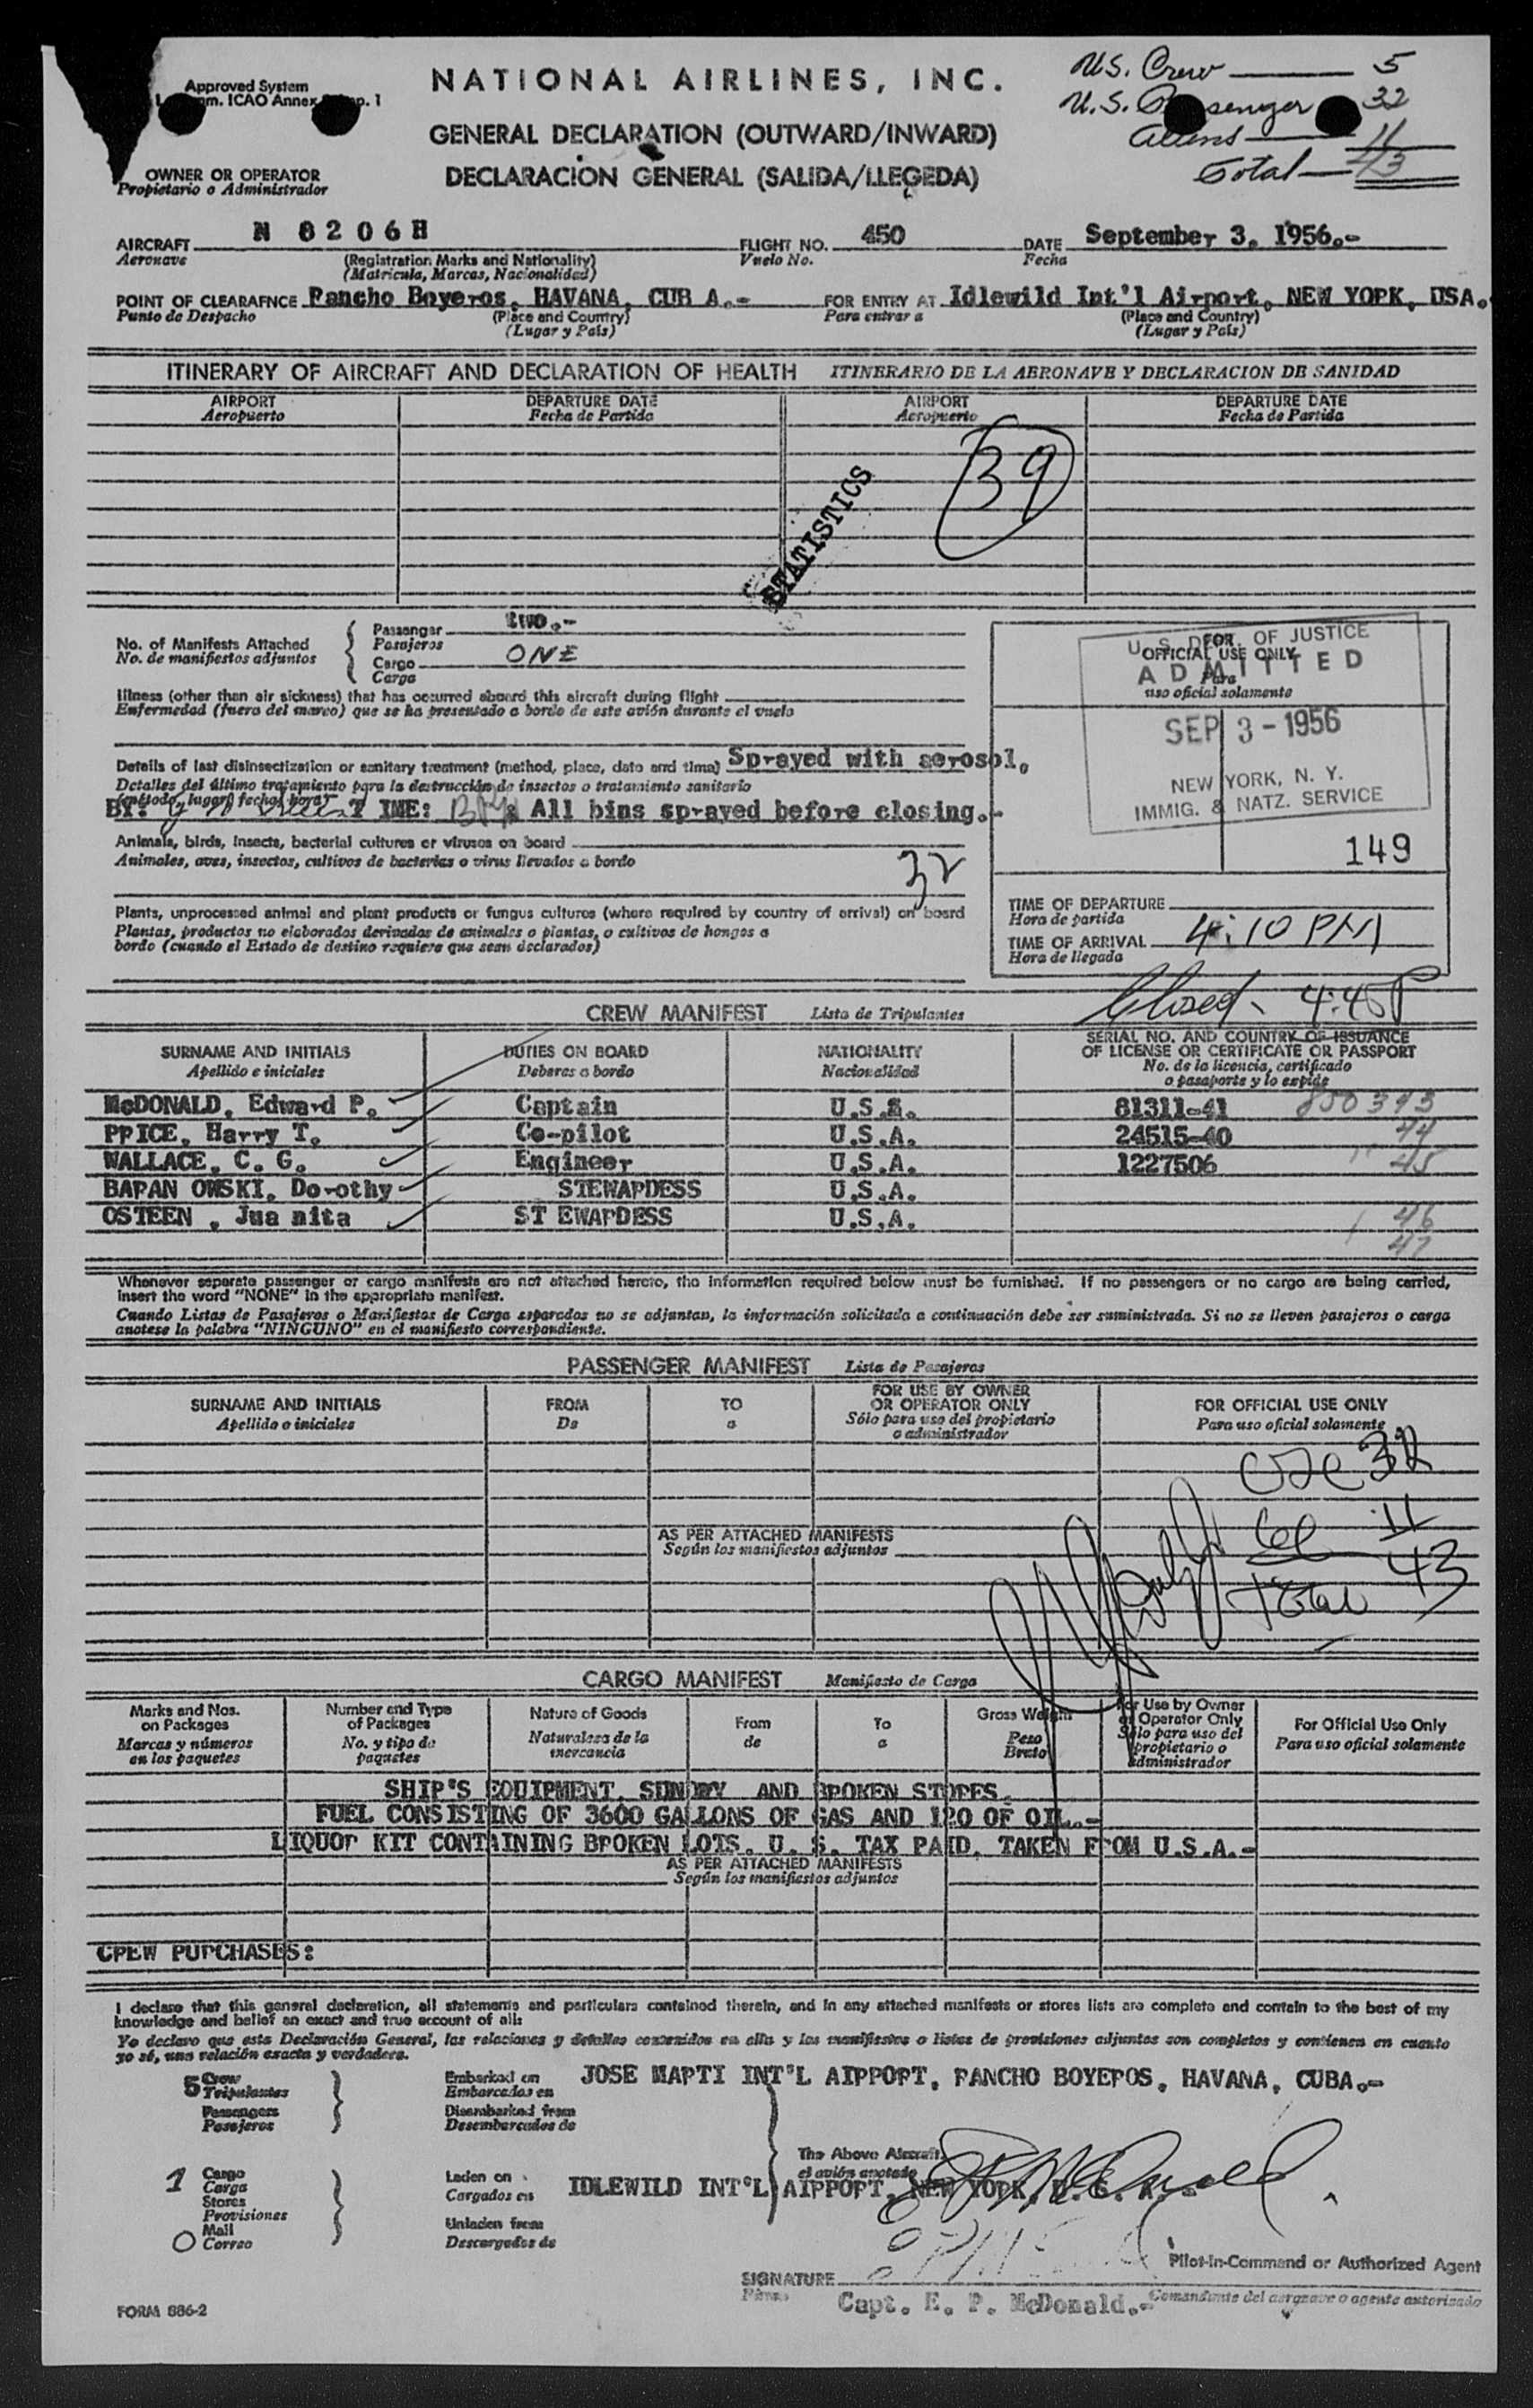 Approved System
ICAO Annex p. 1
NATIONAL AIRLINES, INC.
U.S. Crew 5
U.S. Passenger 32
Aliens 11
Total 43
GENERAL DECLARATION (OUTWARD/INWARD)
DECLARACION GENERAL (SALIDA/LLEGEDA)
OWNER OR OPERATOR
Propietario o Administrador
AIRCRAFT N 8206H FLIGHT NO. 450 DATE September 3, 1956.-
Aeronave (Registration Marks and Nationality) Vuelo No. Fecha
(Matricula, Marcas, Nacionalidad)
POINT OF CLEARAFNCE Rancho Boyeros, HAVANA, CUB A.- FOR ENTRY AT Idlewild Int'l Airport, NEW YORK, USA.
Punto de Despacho (Place and Country) Para entrar a (Place and Country)
(Lugar y País) (Lugar y País)
ITINERARY OF AIRCRAFT AND DECLARATION OF HEALTH ITINERARIO DE LA AERONAVE Y DECLARACION DE SANIDAD
AIRPORT DEPARTURE DATE AIRPORT DEPARTURE DATE
Aeropuerto Fecha de Partida Aeropuerto Fecha de Partida
39
STATISTICS
No. of Manifests Attached Passenger two.-
No. de manifiestos adjuntos Pasajeros
Cargo ONE
Carga
FOR
OFFICIAL USE ONLY
Para
uso oficial solamente
U.S. DEPT. OF JUSTICE
ADMITTED
SEP 3 - 1956
NEW YORK, N. Y.
IMMIG. & NATZ. SERVICE
149
Illness (other than air sickness) that has occurred aboard this aircraft during flight
Enfermedad (fuera del mareo) que se ha presentado a bordo de este avión durante el vuelo
Details of last disinsectization or sanitary treatment (method, place, date and time) Sprayed with aerosol,
Detalles del último tratamiento para la destrucción de insectos o tratamiento sanitario
(método, lugar, fecha, hora)
BY: T IME: All bins sprayed before closing.-
Animals, birds, insects, bacterial cultures or viruses on board
Animales, aves, insectos, cultivos de bacterias o virus llevados a bordo
32
Plants, unprocessed animal and plant products or fungus cultures (where required by country of arrival) on board
Plantas, productos no elaborados derivados de animales o plantas, o cultivos de hongos a
bordo (cuando el Estado de destino requiere que sean declarados)
TIME OF DEPARTURE
Hora de partida
TIME OF ARRIVAL 4:10 PM
Hora de llegada
Closed - 4:45P
CREW MANIFEST Lista de Tripulantes
SURNAME AND INITIALS DUTIES ON BOARD NATIONALITY SERIAL NO. AND COUNTRY OF ISSUANCE
OF LICENSE OR CERTIFICATE OR PASSPORT
Apellido e iniciales Deberes a bordo Nacionalidad No. de la licencia, certificado
o pasaporte y lo expide
McDONALD, Edward P. Captain U.S.A. 81311-41 850393
PRICE, Harry T. Co-pilot U.S.A. 24515-40 44
WALLACE, C. G. Engineer U.S.A. 1227506 45
BARAN OWSKI, Dorothy STEWARDESS U.S.A.
OSTEEN , Jua nita ST EWARDESS U.S.A. 46
47
Whenever separate passenger or cargo manifests are not attached hereto, the information required below must be furnished. If no passengers or no cargo are being carried,
insert the word "NONE" in the appropriate manifest.
Cuando Listas de Pasajeros o Manifiestos de Carga separados no se adjuntan, la información solicitada a continuación debe ser suministrada. Si no se lleven pasajeros o carga
anotese la palabra "NINGUNO" en el manifiesto correspondiente.
PASSENGER MANIFEST Lista de Pasajeros
SURNAME AND INITIALS FROM TO FOR USE BY OWNER OR OPERATOR ONLY FOR OFFICIAL USE ONLY
Apellido e iniciales De a Sólo para uso del propietario o administrador Para uso oficial solamente
32
11
Total 43
AS PER ATTACHED MANIFESTS
Según los manifiestos adjuntos
CARGO MANIFEST Manifiesto de Carga
Marks and Nos. on Packages Number and Type of Packages Nature of Goods From To Gross Weight For Use by Owner or Operator Only For Official Use Only
Marcas y números en los paquetes No. y tipo de paquetes Naturaleza de la mercancia de a Peso Bruto Sólo para uso del propietario o administrador Para uso oficial solamente
SHIP'S EQUIPMENT, SUNDRY AND BROKEN STORES,
FUEL CONSISTING OF 3600 GALLONS OF GAS AND 120 OF OIL.-
LIQUOR KIT CONTAINING BROKEN LOTS. U. S. TAX PAID. TAKEN FROM U.S.A.-
AS PER ATTACHED MANIFESTS
Según los manifiestos adjuntos
CREW PURCHASES:
I declare that this general declaration, all statements and particulars contained therein, and in any attached manifests or stores lists are complete and contain to the best of my
knowledge and belief an exact and true account of all:
Yo declaro que esta Declaración General, las relaciones y detalles contenidos en ella y los manifiestos o listas de provisiones adjuntos son completos y contienen en cuanto
yo sé, una relación exacta y verdadera.
5 Crew Embarked on JOSE MARTI INT'L AIRPORT, RANCHO BOYEROS, HAVANA, CUBA.-
Tripulantes Embarcados en
Passengers Disembarked from
Pasajeros Desembarcados de
The Above Aircraft
el avión anotado
1 Cargo Laden on IDLEWILD INT'L AIRPORT, NEW YORK, U. S. A.-
Carga Cargados en
Stores
Provisiones Unladen from
O Mail Descargados de
Correo
Pilot-in-Command or Authorized Agent
SIGNATURE
Firma Capt. E. P. McDonald.- Comandante del aeronave o agente autorizado
FORM 886-2